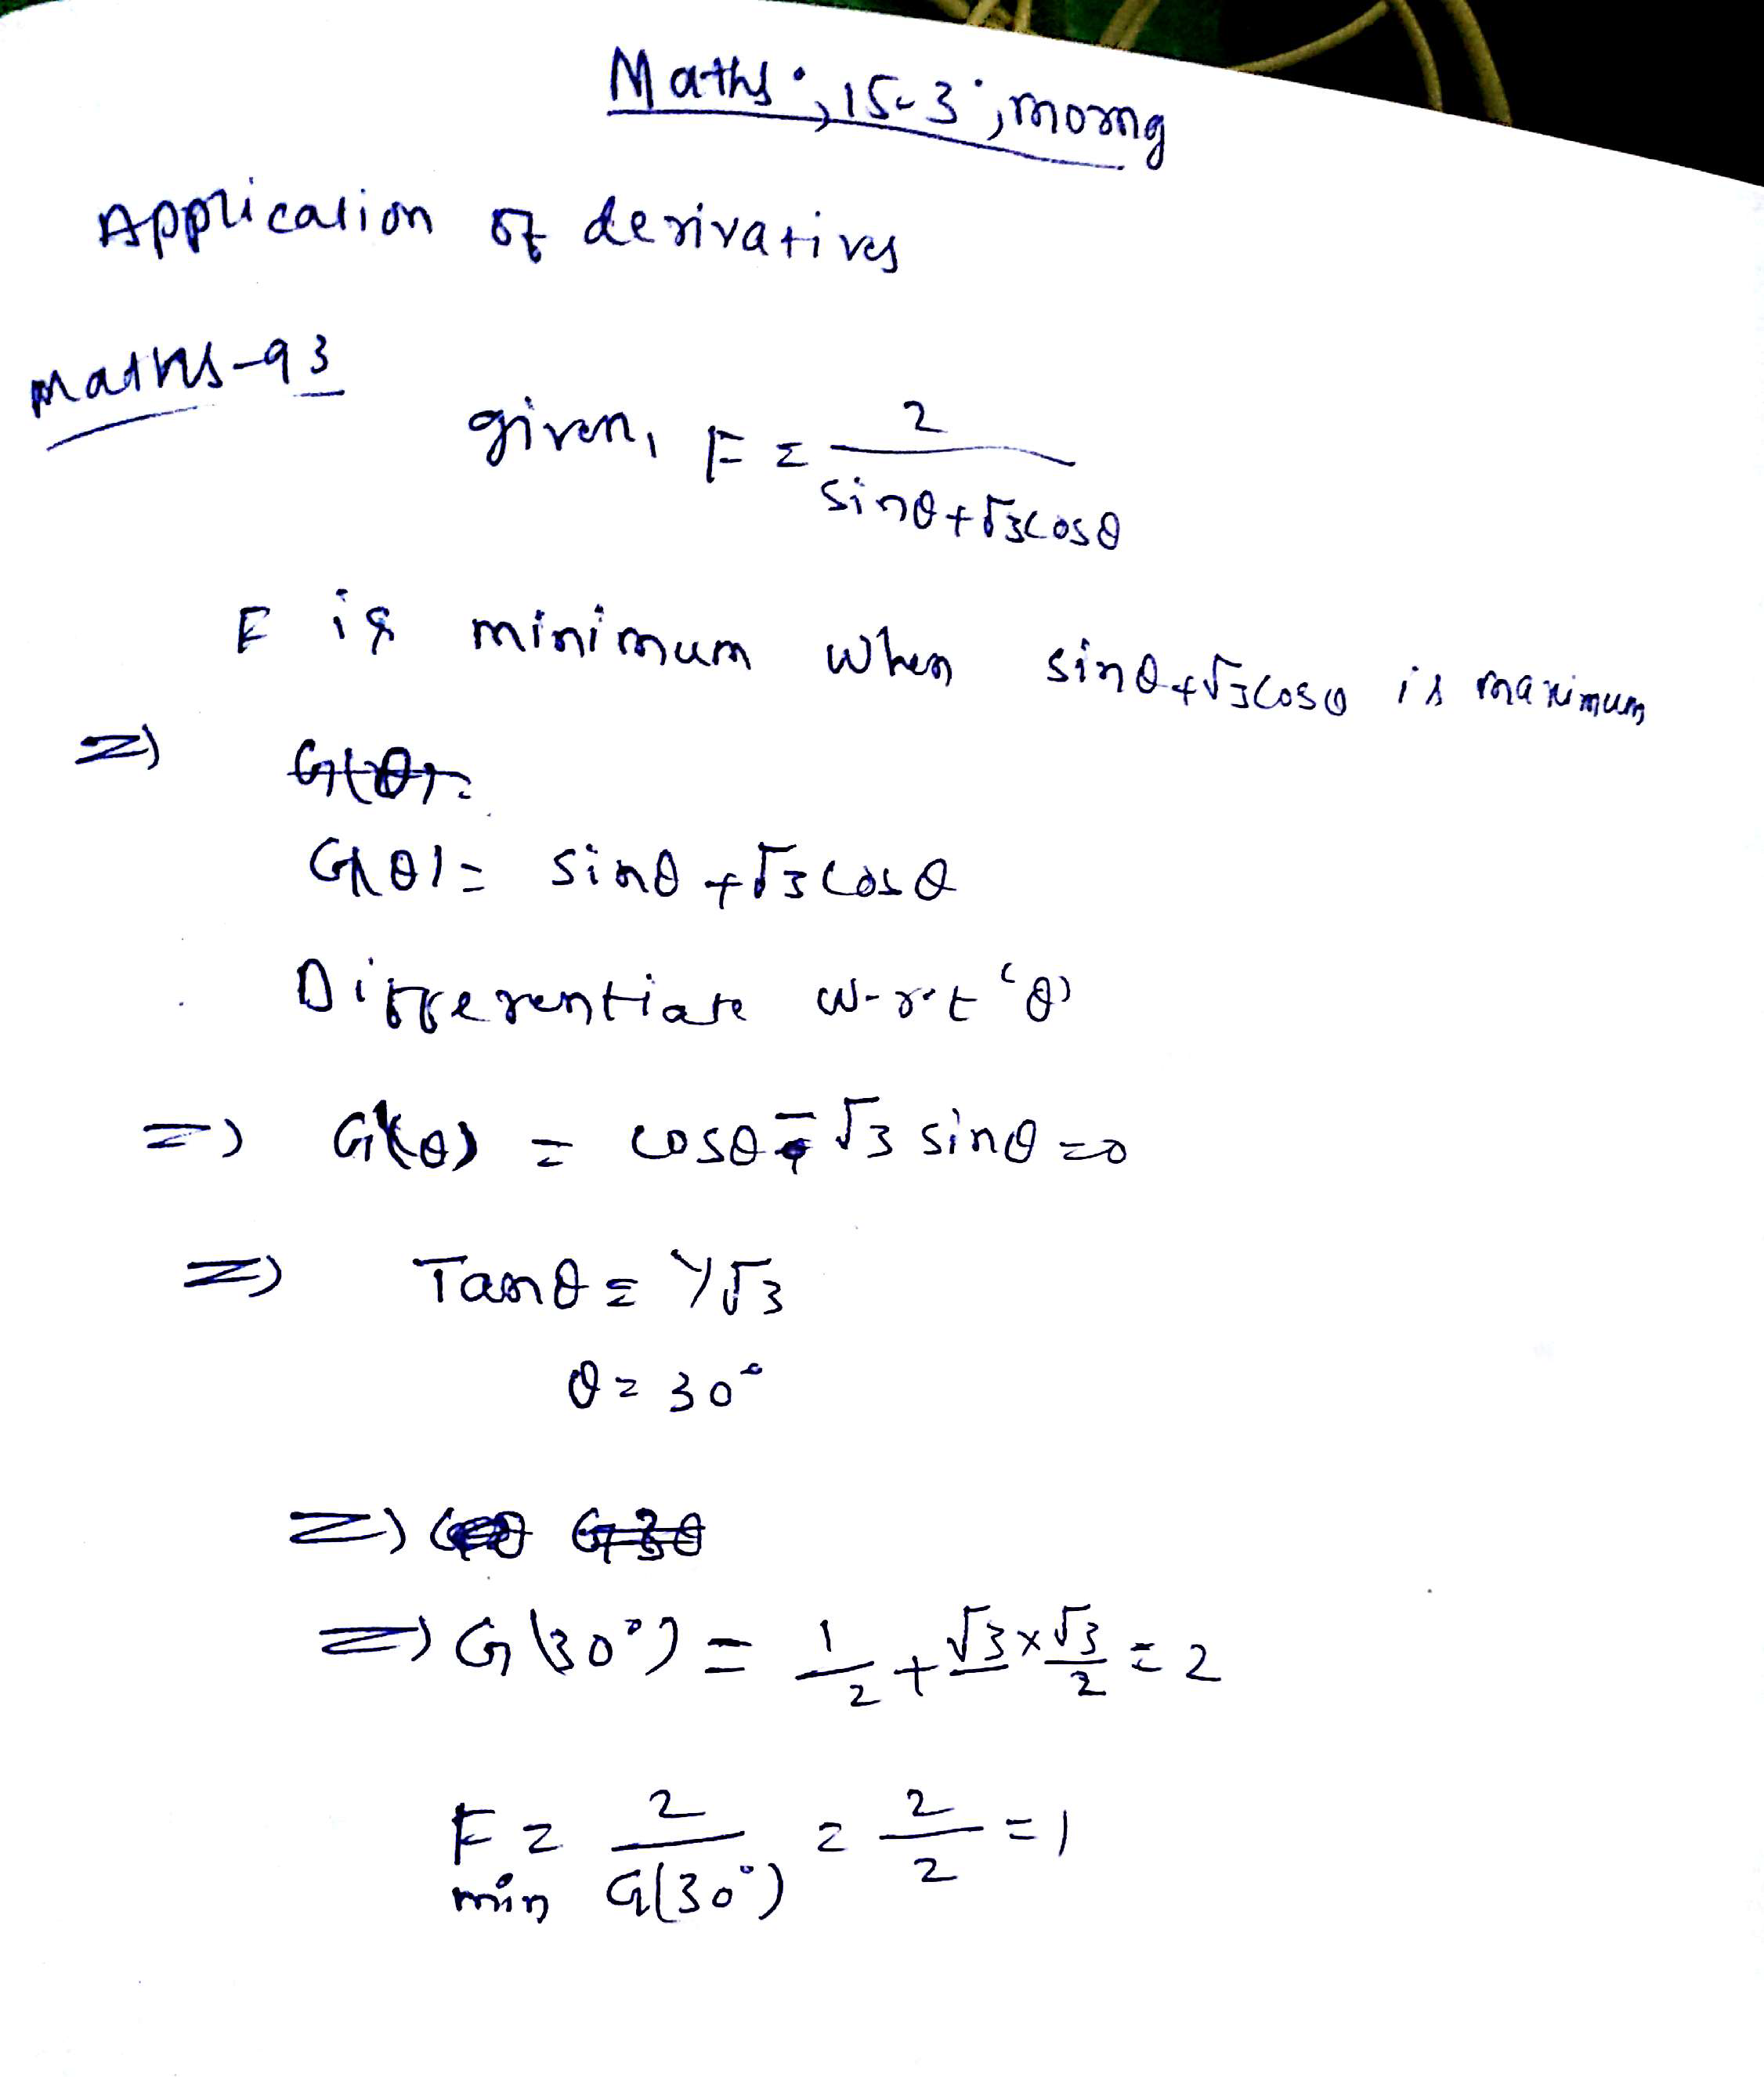 Maths, 15-3, morng
Application of derivatives
Maths-93
given, F = 2/(sinθ+√3cosθ)
F is minimum when sinθ+√3cosθ is maximum
=> G(θ)=
G(θ)= sinθ+√3cosθ
Differentiate w.r.t 'θ'
=> G'(θ) = cosθ-√3 sinθ=0
=> Tanθ = 1/√3
θ = 30°
=>
=> G(30°) = 1/2 + √3×√3/2 = 2
F min = 2/G(30°) = 2/2 = 1